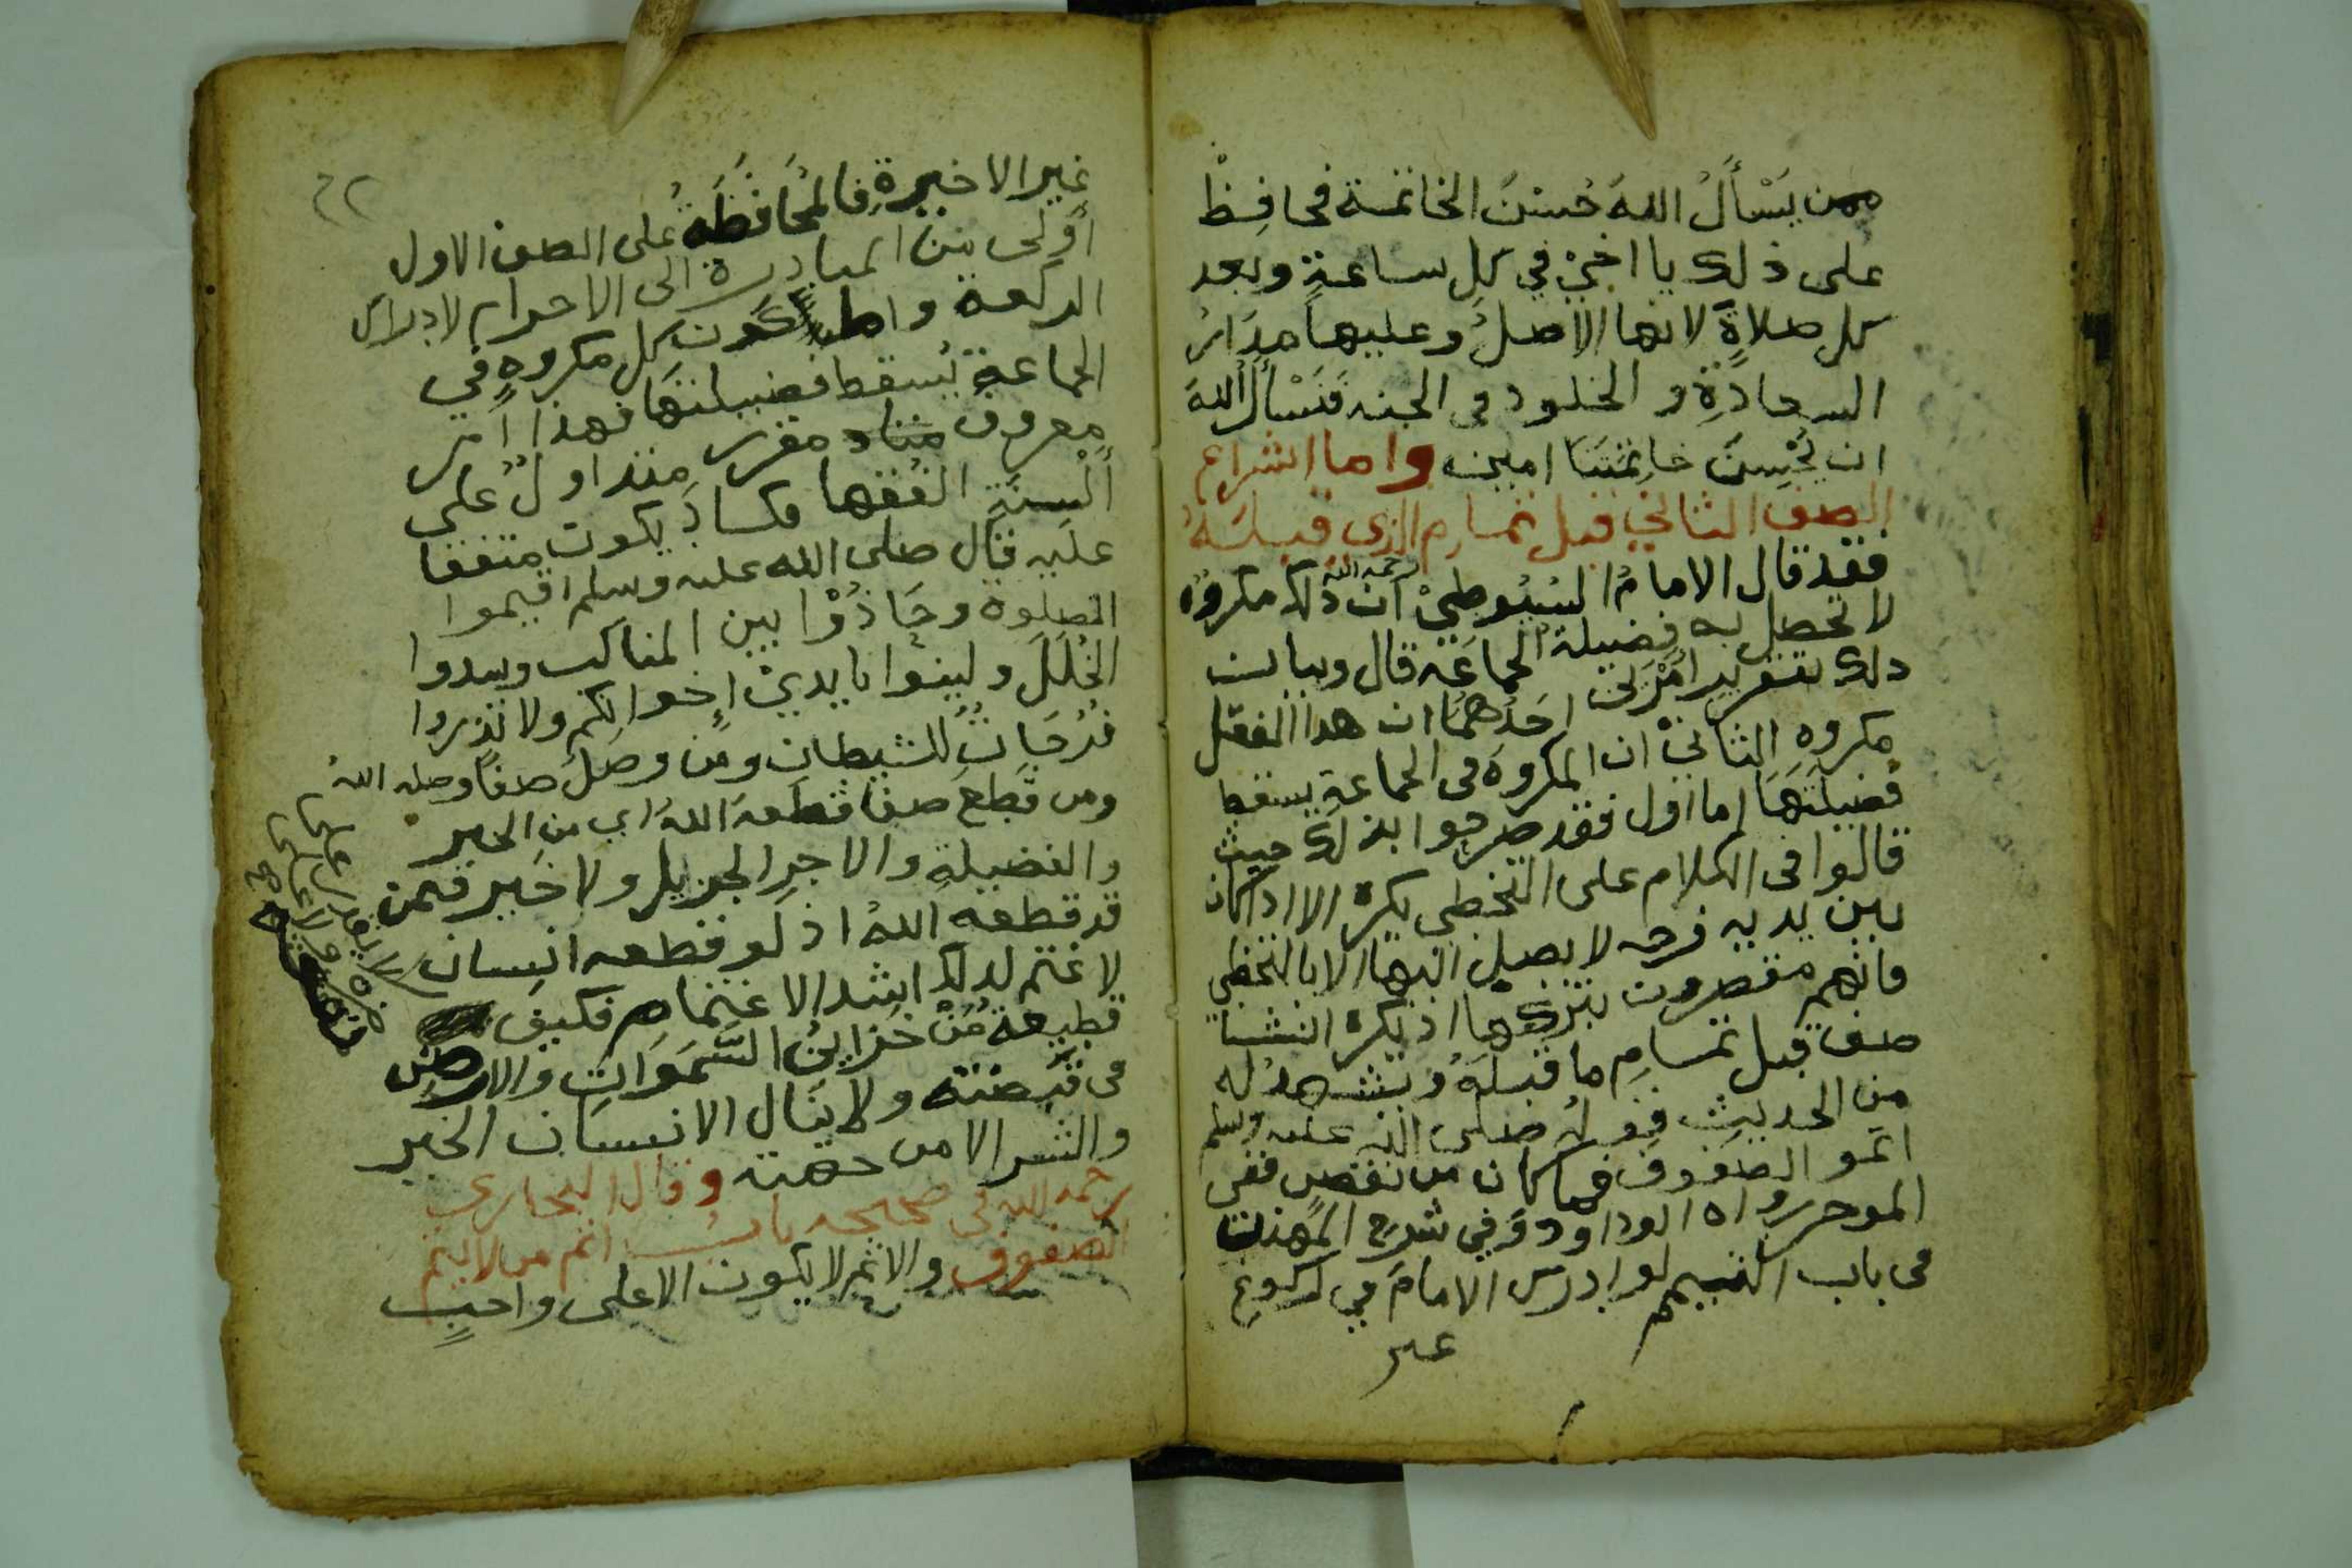 ممن يَسْأَلُ اللهَ حُسْنَ الخاتمة فحافِظْ
على ذلك يا اخِيْ في كلِ ساعةٍ وبعد
كل صلاةٍ لانها الاصلُ وعليها مدَارُ
السعادَةِ و الخلود في الجنه فَنَسْأَلُ اللهَ
ان يُحْسِنَ خاتِمَتَنَا امين واما الشراع
الصف الثاني قبل تمامِ الذي قبلَهُ
فقد قال الامامُ السُيُوطيْ رحمه الله ان ذلك مكروه
لا تحصل به فضيلة الجماعَه قال وبيان
ذلك بتقرير امْرَين احَدُهمَا ان هذا الفعل
مكروهِ الثانيْ ان المكروهَ في الجماعةِ يسقط
فضيلَتَهَا اما اول فقد صرحوا بذلك حيث
قالوا في الكلام على التخطي يكرهُ الا اذا كان
بين يديه فرجه لا يصل اليها الا بالتخطي
فانهم مقصرون بتركها اذ يكره انشا
صف قبل تمامِ ما قبلَهُ ويشهد له
مِن الحديث قوله صلى الله عليه وسلم
اتمو الصفوف فما كان من نقصٍ ففي
الموخر رواه ابوداود وَفي شرح المهذب
في باب التيمم لو ادرك الامامَ في ركوعِ
غير
٦٢
غيرِ الاخيرةِ فالمُحَافَظَةُ على الصف الاول
أَوْلَى من المبادرة الى الاحرام لادراك
الركعة واما كَون كل مكروهٍ في
الجماعةِ يُسقط فضيلتَهَا فهذا أمر
معروفٌ مقرر متداولٌ على
أَلْسِنَةِ الفقها وكادَ يكون متفقا
عليه قال صلى الله عليه وسلم اقيموا
الصلوة وحَاذُوْا بين المناكب وسدوا
الخُلَلَ ولينوا بايديْ إخوانكم ولا تذروا
فُرُجَاتٌ للشيطان ومن وصَلَ صفاً وصله اللهُ
ومن قَطَعَ صفا قطعه اللهَ اي من الخير
والفضيلةِ والاجرِ الجزيل ولا خَير فيمن
قد قطعه اللهُ اذ لو قطعه انسان
لاغتم لذلك اشد الاغتمام فكيف
قطيعةُ مَنْ خزاينُ السَّمَوَاتِ والارض
في قبضته ولا يَنَال الانسان الخير
والشر الا من جهته وقال البخاري
رحمه الله في صحيحه بابُ اثم من لا يتم
الصفوف والاثم لا يكون الا على واجبٍ